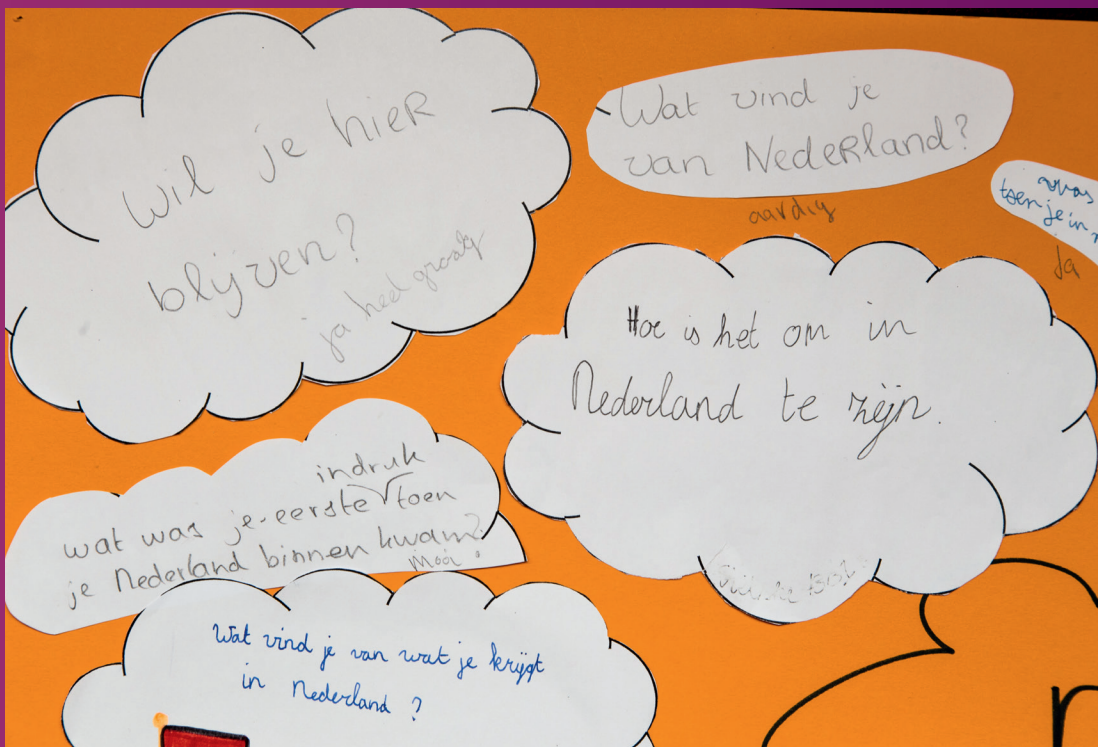 Wil je hier
blijven?
ja heel graag
Wat vind je
van Nederland?
aardig
was
toen je in
Ja
Hoe is het om in
Nederland te zijn.
indruk
wat was je eerste toen
je Nederland binnen kwam?
Mooi
Wat vind je van wat je krijgt
in Nederland?